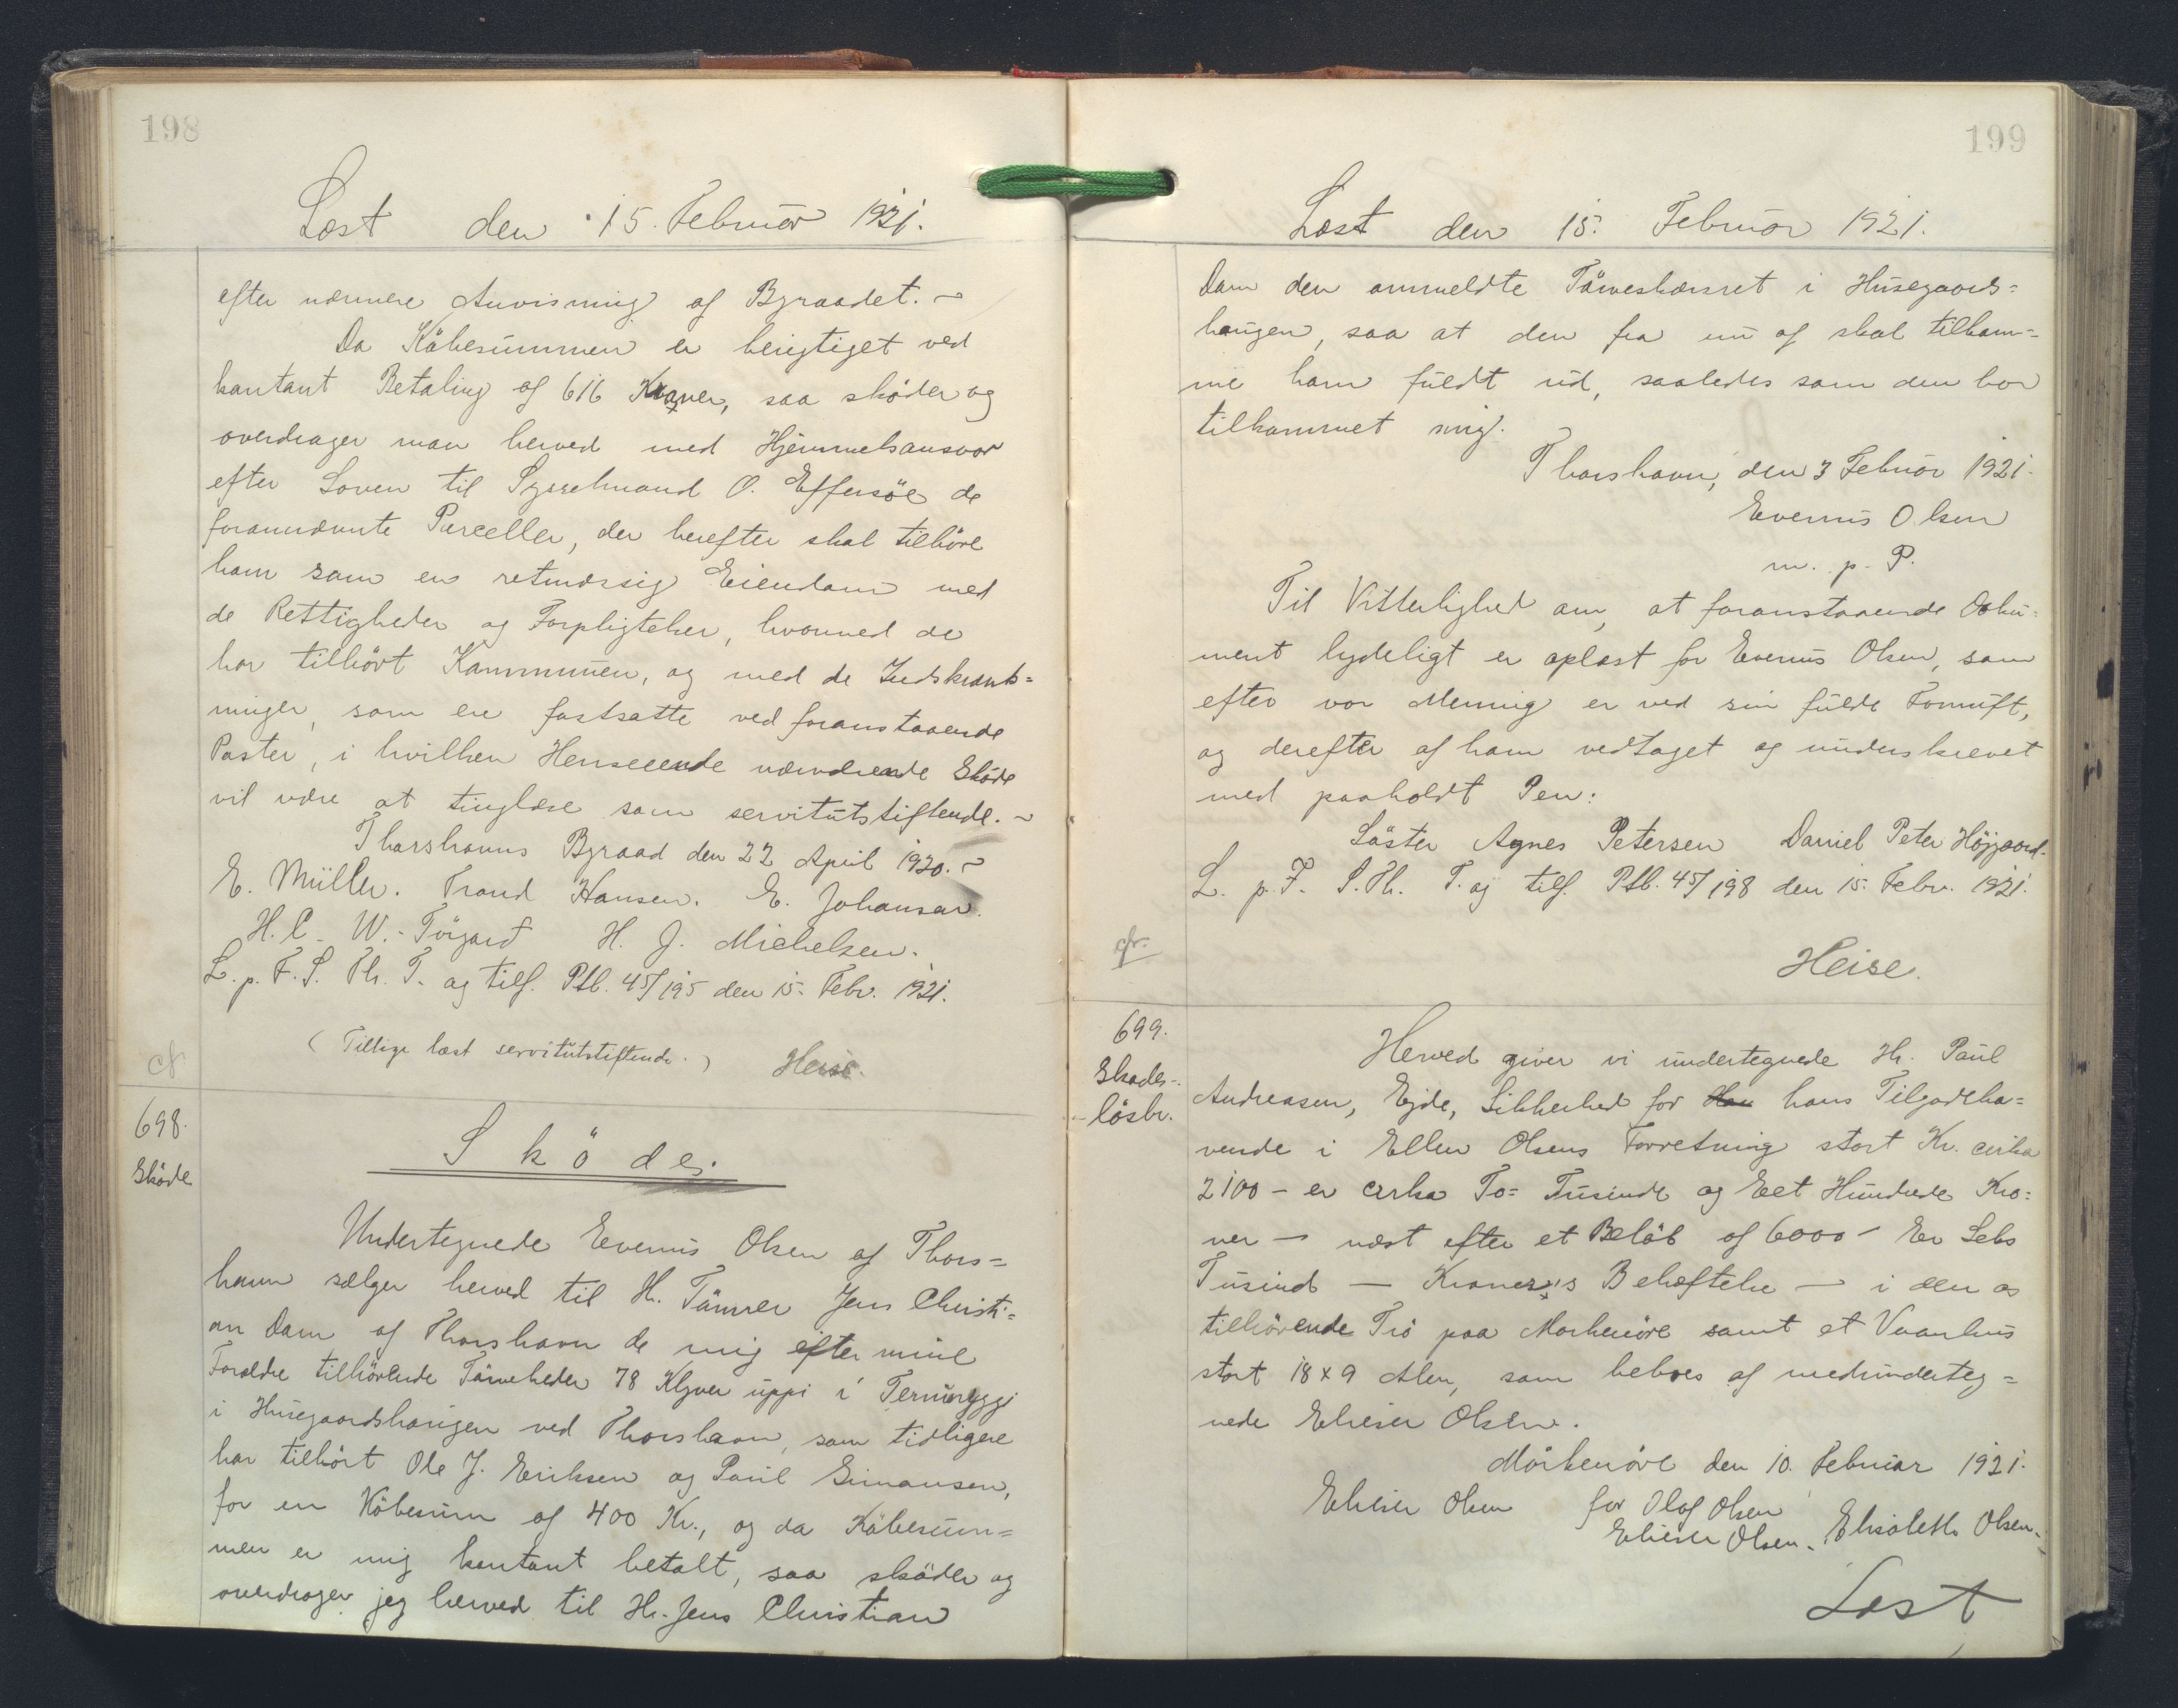 198
Læst den 15. Februar 1921.
efter nærmere Anvisning af Byraadet. -
Da Köbesummen er berigtiget ved
kontant Betaling af 616 Kroner, saa sköder og
overdrager man herved med Hjemmelsansvar
efter Loven til Sysselmand O. Effersöe de
forannævnte Parceller, der herefter skal tilhöre
ham som en retmæssig Eiendom med
de Rettigheder og Forpligtelser, hvormed de
har tilhört Kommunen, og med de Indskrænk=
ninger, som ere fastsatte ved foranstaaende
Poster, i hvilken Henseeende nærværende Sköde
vil være at tinglæse som servitutstiftende. -
Thorshavns Byraad den 22 April 1920. -
E. Müller. Trond Hansen. E. Johansen.
H. C. W. Törgard H. J. Michelsen.
L. p. F. S. Th. T. og tilf. Ptb. 45/195 den 15. Febr. 1921.
(Tillige læst servitutstiftende.) Heise.
cfr.
698.
Sköde
Sköde.
Undertegnede Evenus Olsen af Thors=
havn sælger herved til Hr. Tömrer Jens Christi=
an Dam af Thorshavn de mig efter mine
Forældre tilhörende Törveheder 78 Klyver uppi i
i Husegaardshaugen ved Thorshavn, som tidligere
har tilhört Ole J. Eriksen og Poul Simonsen,
for en Köbesum af 400 Kr., og da Köbesum=
men er mig kontant betalt, saa sköder og
overdrager jeg herved til Hr. Jens Christian
199
Læst den 15. Februar 1921.
Dam den ommeldte Törveskærsret i Husegaards=
haugen, saa at den fra nu af skal tilkom=
me ham fuldt ud, saaledes som den har
tilkommet mig.
Thorshavn, den 3 Februar 1921.
Evenus Olsen
m. p. P.
Til Vitterlighed om, at foranstaaende Doku=
ment lydeligt er oplæst for Evenus Olsen, som
efter vor Mening er ved sin fulde Fornuft,
og derefter af ham vedtaget og underskrevet
med paaholdt Pen:
Söster Agnes Petersen Daniel Peter Höjgaard.
L. p. F. S. Th. T. og tilf. Ptb. 45/198 den 15. Febr. 1921.
cfr.
Heise.
699.
Skades-
lösbr.
Herved giver vi undertegnede Hr. Paul
Andreasen, Ejde, Sikkerhed for hans Tilgodeha=
vende i Ellen Olsens Forretning stort Kr. cirka
2100 - er cirka To= Tusinde og Eet Hundrede Kro=
ner - næst efter et Belöb af 6000 - Er Seks
Tusind - Kroners Behæftelse - i den os
tilhörende Trö paa Morkenöre samt et Vaanhus
stort 18 x 9 Alen, som beboes af medunderteg=
nede Elieser Olsen.
Mörkenöre den 10. Februar 1921.
Elieser Olsen for Olaf Olsen
Elieser Olsen. Elisabeth Olsen.
Læst